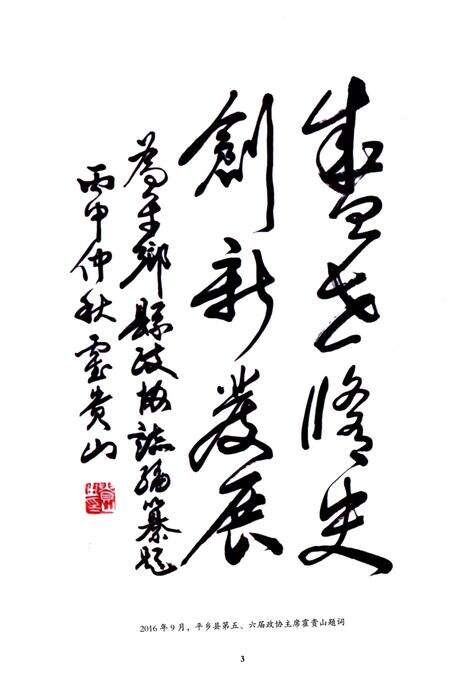 盛世脩史
創新發展
為平鄉縣政協誌編纂題
丙申仲秋霍貴山
2016年9月，平乡县第五、六届政协主席霍贵山题词
3